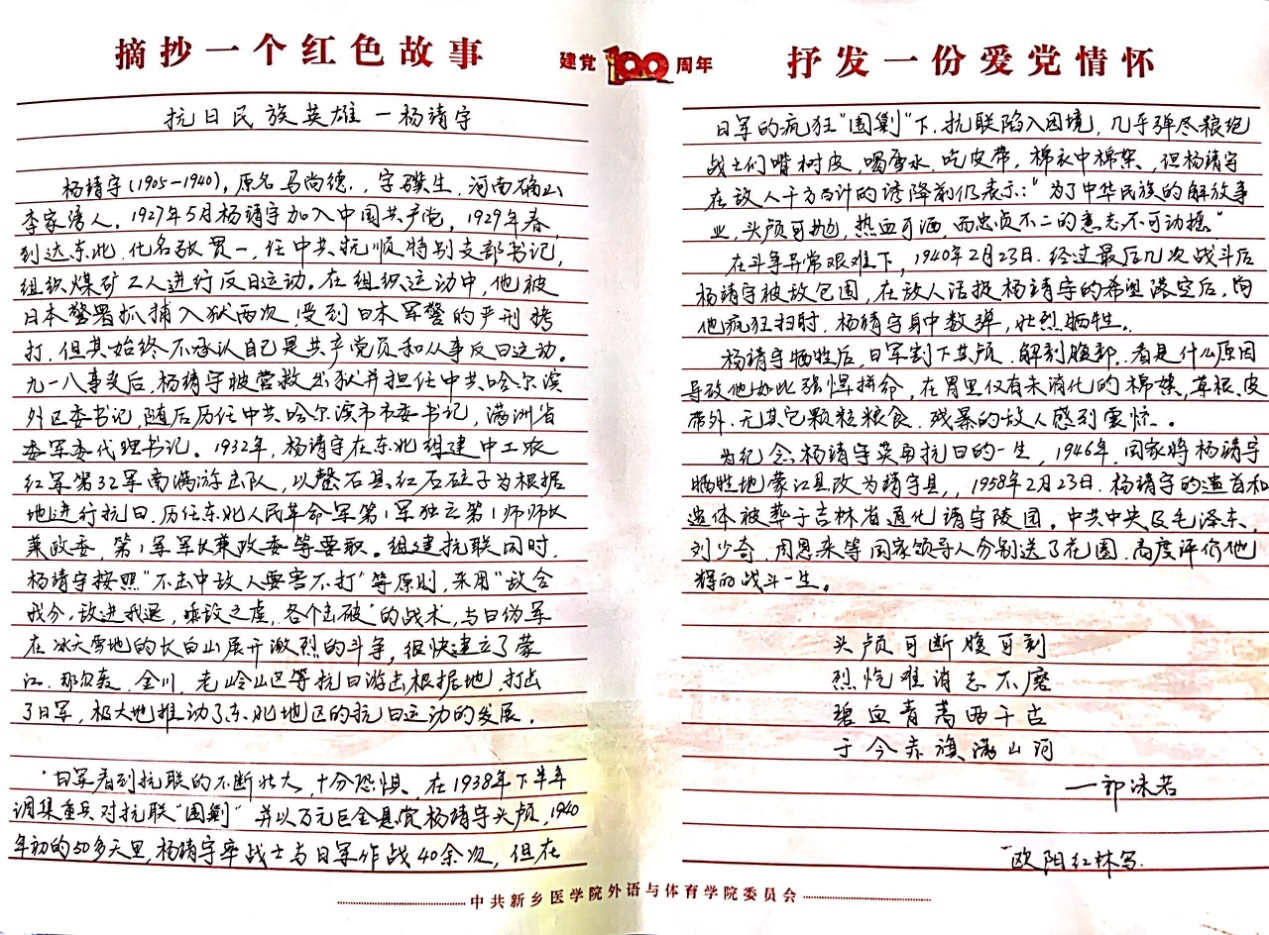 摘抄一个红色故事
建党100周年
抒发一份爱党情怀
抗日民族英雄一杨靖宇
杨靖宇(1905-1940),原名马尚德.,字骥生.河南确山
李家湾人.1927年5月杨靖宇加入中国共产党,1929年春,
到达东北.化名张贯一,任中共抚顺特别支部书记,
组织煤矿工人进行反日运动。在组织运动中,他被
日本警署抓捕入狱两次.受到日本军警的严刑拷
打,但其始终不承认自己是共产党员和从事反日运动。
九一八事变后,杨靖宇被营救出狱并担任中共哈尔滨
外区委书记,随后历任中共哈尔滨市市委书记,满洲省
委军委代理书记。1932年,杨靖宇在东北组建中工农
红军第32军南满游击队,以磐石县红石砬子为根据
地进行抗日.历任东北人民革命军第1军独立第1师师长
兼政委,第1军军长兼政委等要职。组建抗联同时,
杨靖宇按照"不击中敌人要害不打"等原则,采用"敌合
我分,敌进我退,乘敌之虚,各个击破"的战术,与日伪军
在冰天雪地的长白山展开激烈的斗争,很快建立了蒙
江.那尔轰.金川.老岭山区等抗日游击根据地,打击
了日军,极大地推动了东北地区的抗日运动的发展.
日军看到抗联的不断壮大,十分恐惧.在1938年下半年
调集重兵对抗联"围剿"并以万元巨金悬赏杨靖宇头颅,1940
年初的50多天里,杨靖宇率战士与日军作战40余次,但在
日军的疯狂"围剿"下.抗联陷入困境,几乎弹尽粮绝
战士们嚼树皮,喝雪水.吃皮带,棉衣中棉絮、但杨靖宇
在敌人千方百计的诱降前仍表示:"为了中华民族的解放事
业,头颅可抛,热血可洒,而忠贞不二的意志不可动摇"
在斗争异常艰难下,1940年2月23日.经过最后几次战斗后
杨靖宇被敌包围,在敌人活捉杨靖宇的希望落空后,向
他疯狂扫射.杨靖宇身中数弹,壮烈牺牲。
杨靖宇牺牲后,日军割下其颅.解剖腹部.看是什么原因
导致他如此强悍拼命,在胃里仅有未消化的棉絮,草根、皮
带外.无其它颗粒粮食.残暴的敌人感到震惊.
为纪念杨靖宇英勇抗日的一生,1946年,国家将杨靖宇
牺牲地蒙江县改为靖宇县,,1958年2月23日.杨靖宇的遗首和
遗体被葬于吉林省通化靖宇陵园。中共中央及毛泽东、
刘少奇.周恩来等国家领导人分别送了花圈.高度评价他
辉的战斗一生。
头颅可断腹可剖
烈忾难消志不磨
碧血青蒿两千古
于今赤旗满山河
一郭沫若
欧阳红林写.
中共新乡医学院外语与体育学院委员会